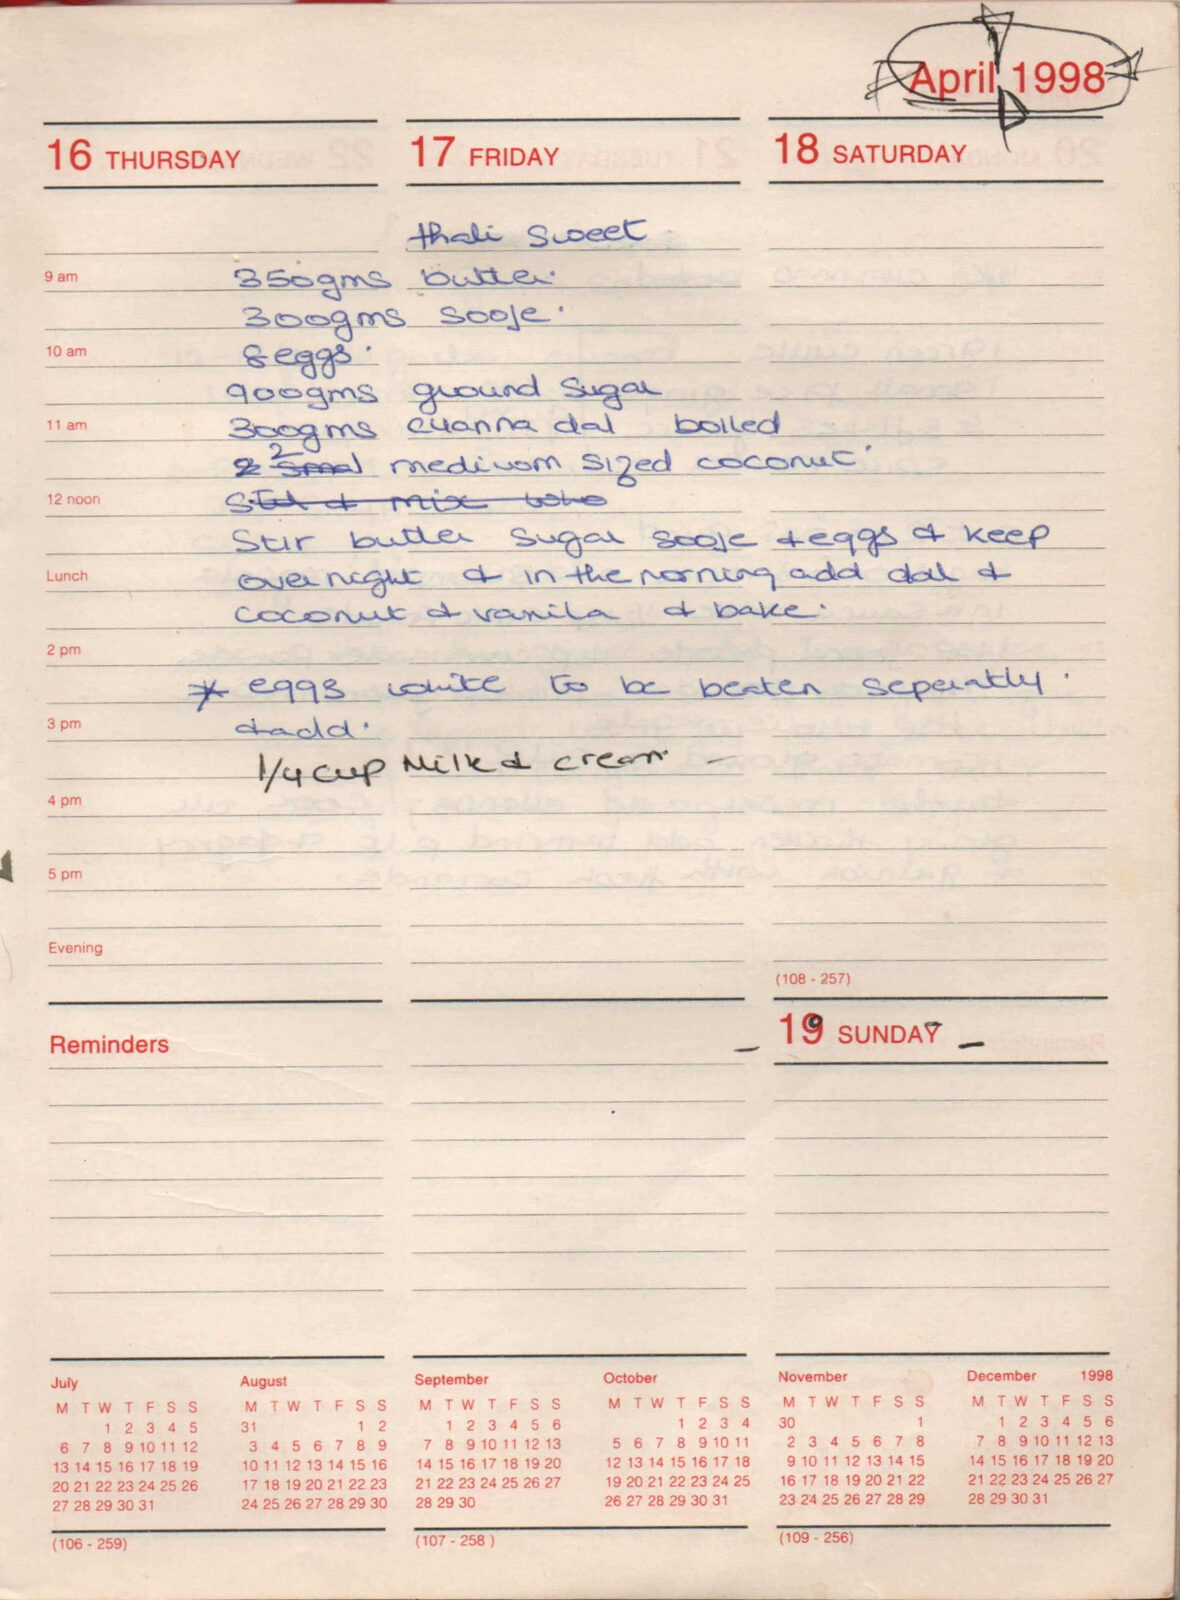 April 1998
16 THURSDAY
17 FRIDAY
18 SATURDAY
thali sweet
9 am
350gms butter.
300gms sooje.
10 am
8 eggs.
900gms ground sugar
11 am
300gms channa dal boiled
2 2 small medium sized coconut.
12 noon
Stir & mix
Stir butter sugar sooje & eggs & keep
Lunch
overnight & in the morning add dal &
coconut & vanila & bake.
2 pm
* eggs white to be beaten seperatly.
3 pm
& add.
1/4 cup Milk & cream -
4 pm
5 pm
Evening
(108 - 257)
Reminders
19 SUNDAY
July
M T W T F S S
1 2 3 4 5
6 7 8 9 10 11 12
13 14 15 16 17 18 19
20 21 22 23 24 25 26
27 28 29 30 31
August
M T W T F S S
31 1 2
3 4 5 6 7 8 9
10 11 12 13 14 15 16
17 18 19 20 21 22 23
24 25 26 27 28 29 30
September
M T W T F S S
1 2 3 4 5 6
7 8 9 10 11 12 13
14 15 16 17 18 19 20
21 22 23 24 25 26 27
28 29 30
October
M T W T F S S
1 2 3 4
5 6 7 8 9 10 11
12 13 14 15 16 17 18
19 20 21 22 23 24 25
26 27 28 29 30 31
November
M T W T F S S
30 1
2 3 4 5 6 7 8
9 10 11 12 13 14 15
16 17 18 19 20 21 22
23 24 25 26 27 28 29
December 1998
M T W T F S S
1 2 3 4 5 6
7 8 9 10 11 12 13
14 15 16 17 18 19 20
21 22 23 24 25 26 27
28 29 30 31
(106 - 259)
(107 - 258 )
(109 - 256)